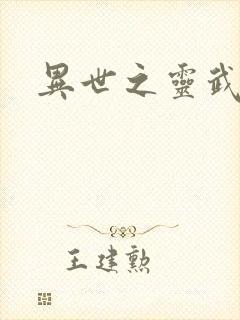 異世之靈武
王建勲